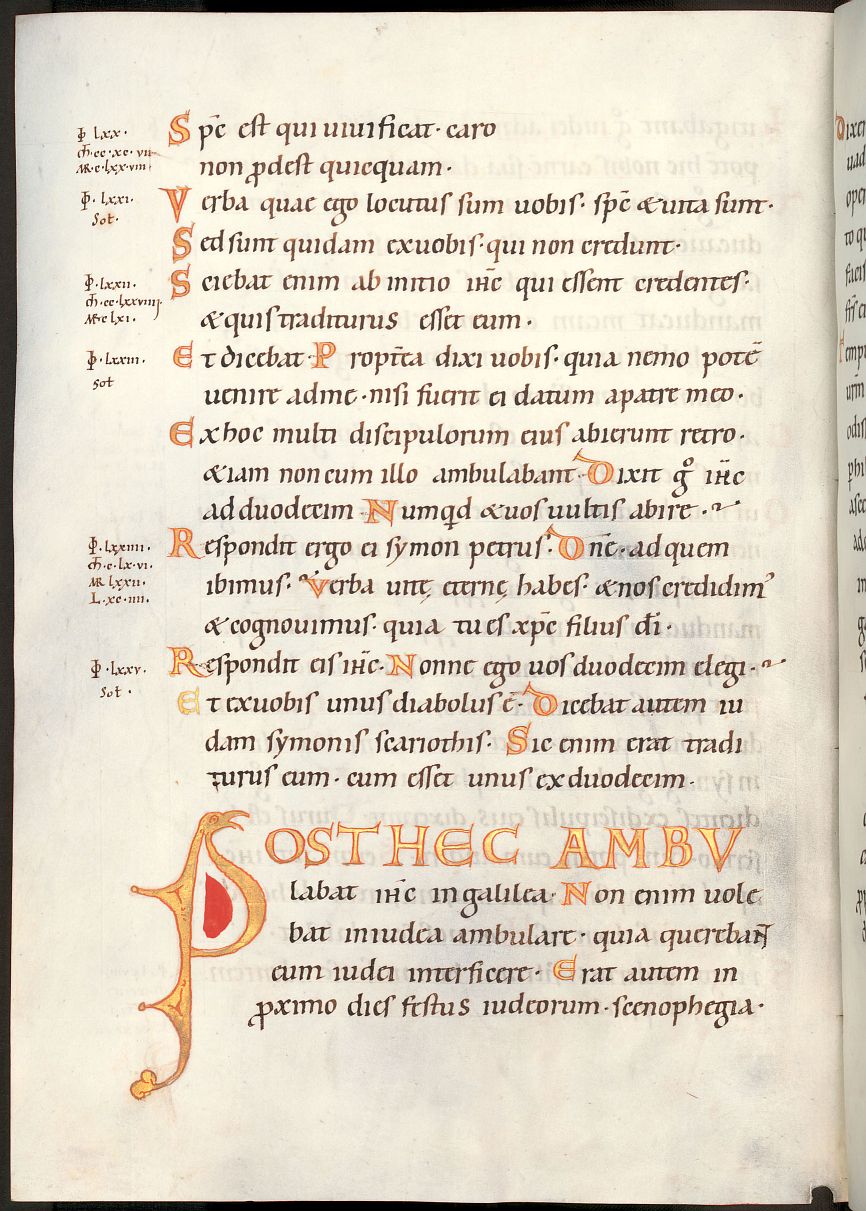 Φ lxx·
Sp̄c est qui uiuificat· caro
ch̄·cc·xc·vii
non ꝓdest quicquam·
MR·c·lxx·viii
Φ·lxxi·
Verba quae ego locutus sum uobis· sp̄c &uita sunt·
Sot·
Sed sunt quidam exuobis· qui non credunt·
Φ·lxxii·
Sciebat enim ab initio ih̄c qui essent credentes·
ch̄·cc·lxxviiii·
MR·c lxi·
&quis traditurus esset eum·
Φ·lxxiii·
Et dicebat· Propt̄ea dixi uobis· quia nemo potē
sot
uenire adme· nisi fuerit ei datum apatre meo·
Exhoc multi discipulorum eius abierunt retro·
&iam noncum illo ambulabant· Dixit gͦ ih̄c
adduodecim Numqd &uos uultis abire·
Φ·lxxiiii·
Respondit ergo ei symon petrus· Dn̄e· adquem
ch̄·c·lx·vi·
MR lxxii·
ibimus· Verba uitę eternę habes· &nos credidim᾿
L·xc·iiii·
&cognouimus· quia tu es xp̄c filius dī·
Φ·lxxv·
Respondit eis ih̄c· Nonne ego uos duodecim elegi·
Sot·
Et exuobis unus diabolus ē· Dicebat autem iu
dam symonis scariothis· Sic enim erat tradi
turus eum· cum esset unus ex duodecim·
POST HEC AMBU
labat ih̄c ingalilea· Non enim uole
bat iniudea ambulare· quia querebant
eum iudei interficere· Erat autem in
ꝓximo dies festus iudeorum· scenophegia·